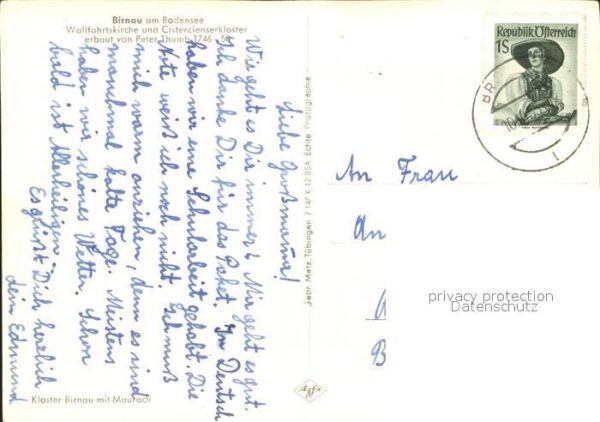 Birnau am Bodensee
Wallfahrtskirche und Cistercienserkloster
erbaut von Peter Thumb 1746 - 50
Liebe Großmama!
Wie geht es Dir immer? Mir geht es gut.
Ich danke Dir für das Paket. In Deutsch
haben wir eine Schularbeit gehabt. Die
Note weiß ich noch nicht. Ich muß
mich warm anziehen, denn es sind
manchmal kalte Tage. Meistens
haben wir schönes Wetter. Schon
bald ist Allerheiligen.
Es grüßt Dich herzlich
dein Edmund
Kloster Birnau mit Maurach
Gebr. Metz, Tübingen / 147 K 12 BSA Echte Photographie
Agfa
Republik Österreich
1S
BR
An Frau
An
B
privacy protection
Datenschutz